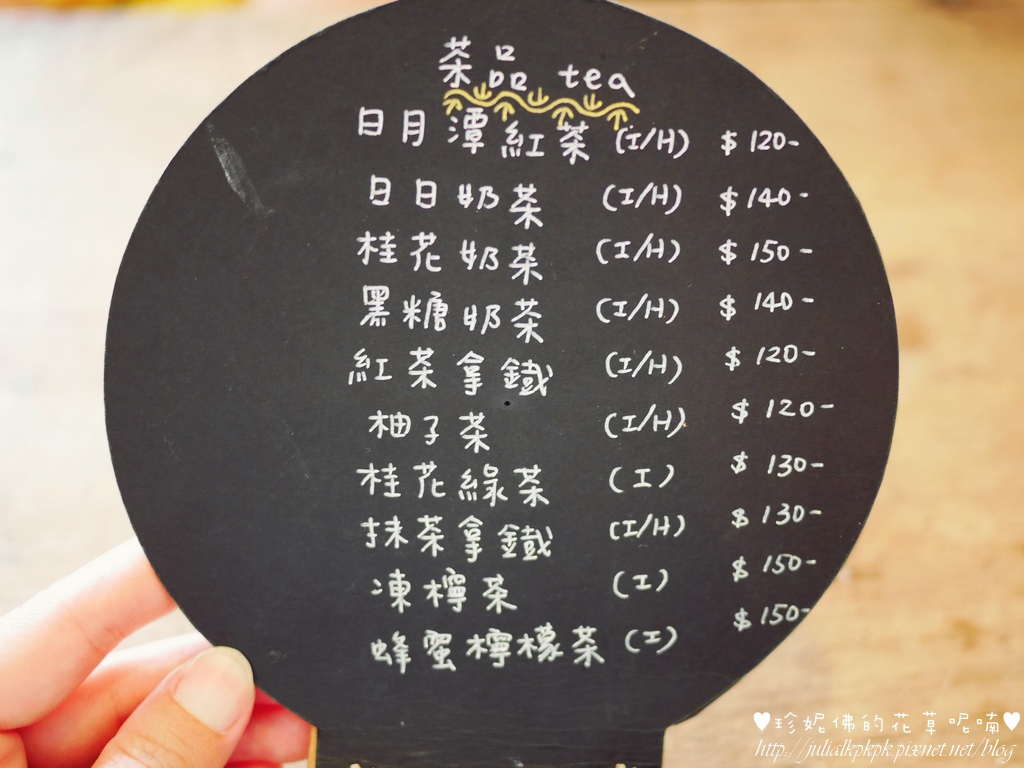 茶品 tea
日月潭紅茶 (I/H) $120-
日日奶茶 (I/H) $140-
桂花奶茶 (I/H) $150-
黑糖奶茶 (I/H) $140-
紅茶拿鐵 (I/H) $120-
柚子茶 (I/H) $120-
桂花綠茶 (I) $130-
抹茶拿鐵 (I/H) $130-
凍檸茶 (I) $150-
蜂蜜檸檬茶 (I) $150-
♥珍妮佛的花草呢喃♥
http://julialkpkpk.pixnet.net/blog